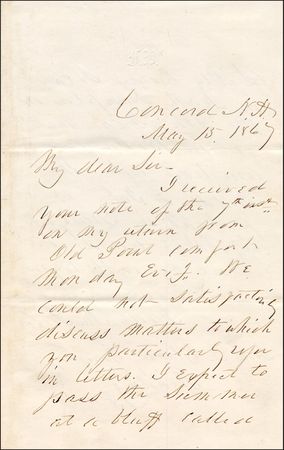 Concord N.H.
May 15. 1867
My dear Sir-
I received
your note of the 7th inst
on my return from
Old Point comfort
Monday Evg. We
could not satisfactorily
discuss matters to which
you particularly refer
in letters. I expect to
pass the Summer
at a bluff called